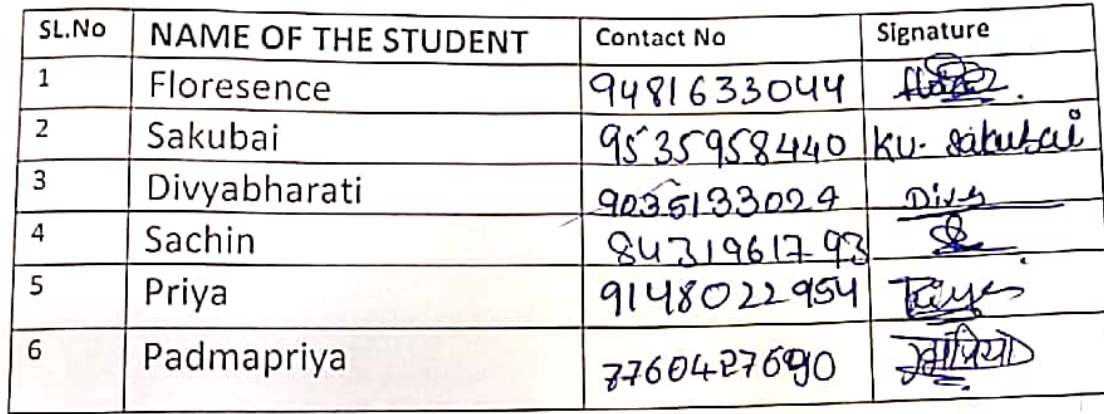 SL.No NAME OF THE STUDENT Contact No Signature
1 Floresence 9481633044
2 Sakubai 9535958440 KU. Sakubai
3 Divyabharati Divy
4 Sachin 8431961793
5 Priya 9148022954 Priya
6 Padmapriya 7760427690